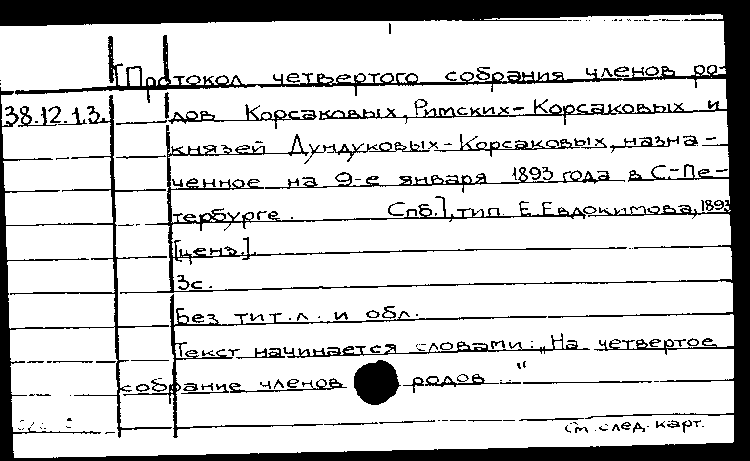 [Протокол четвертого собрания членов ро-
38.12.1.3. дов Корсаковых, Римских-Корсаковых и
князей Дундуковых-Корсаковых, назна-
ченное на 9-е января 1893 года в С.-Пе-
тербурге. Спб.], тип. Е. Евдокимова, 1893
[ценз.].
3с.
Без тит. л. и обл.
Текст начинается словами: „На четвертое
собрание членов родов ..."
См. след. карт.